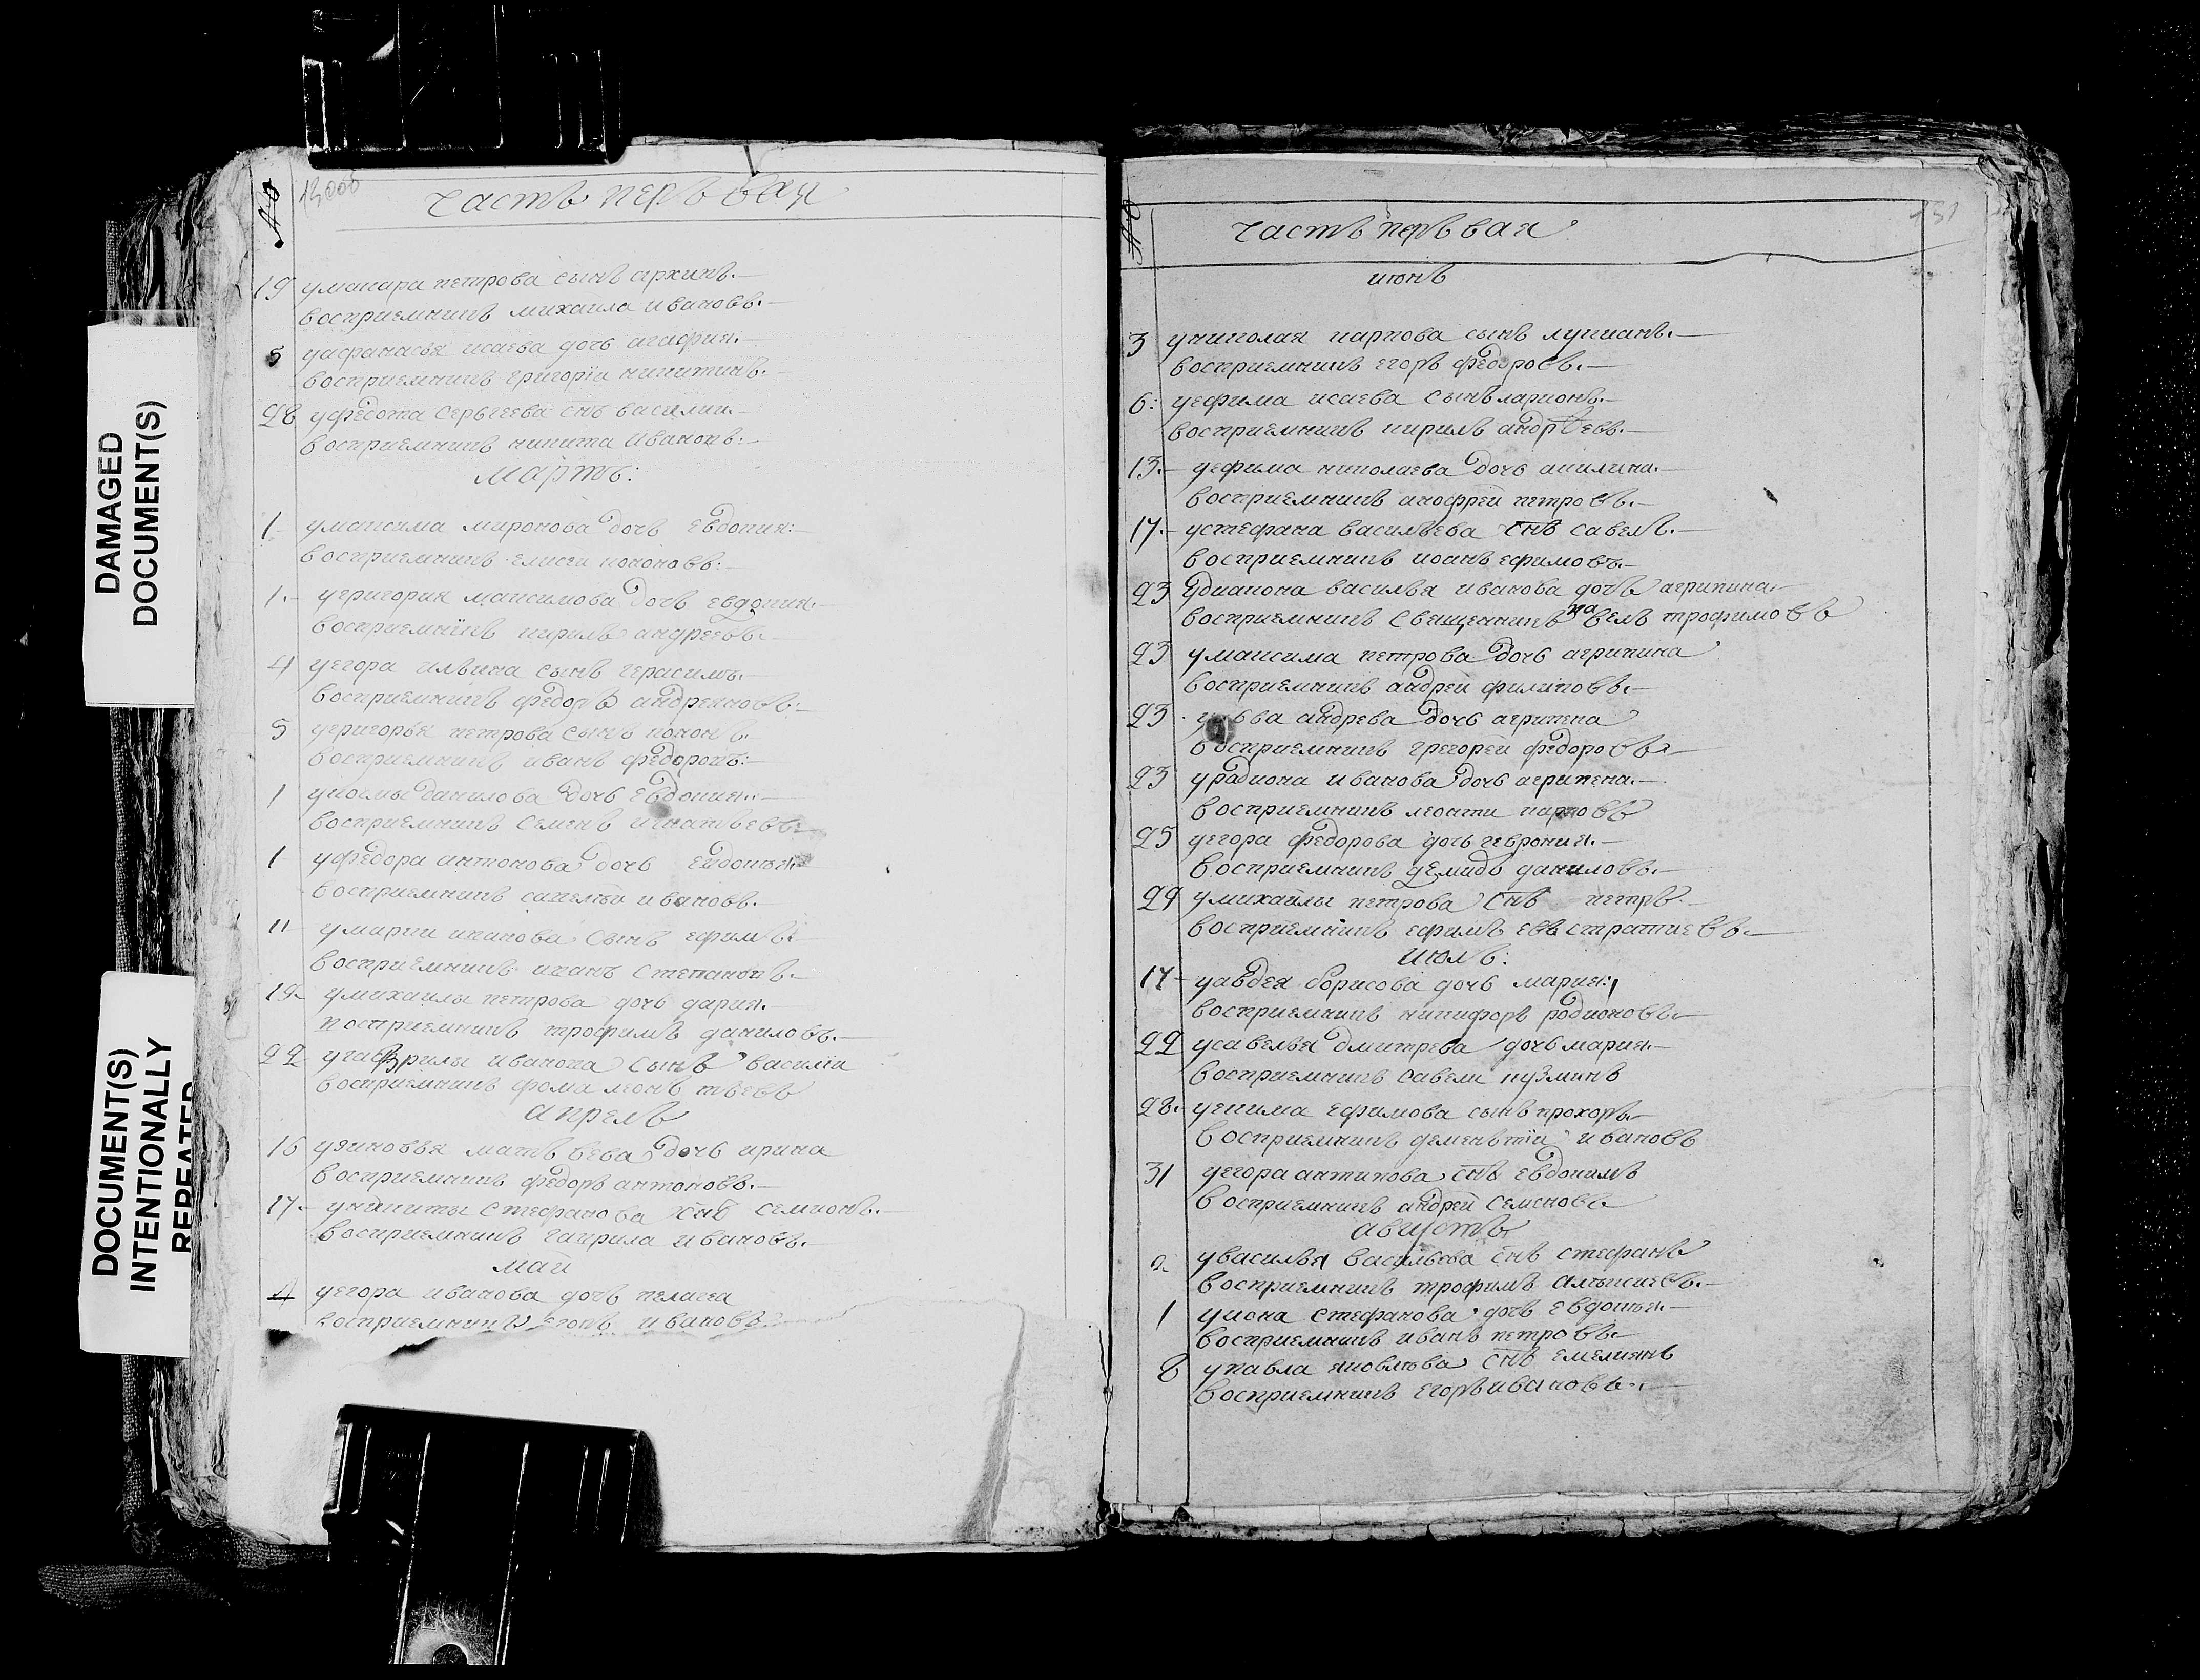 DAMAGED
DOCUMENT(S)
DOCUMENT(S)
INTENTIONALLY
REPEATED
часть перьвая
19 умакара петрова сынъ архипъ.
восприемникъ михаила ивановъ.
5 уафанасья исаева дочь агафия.
восприемникъ григории никитинъ.
28 уфедота сергеева снъ василии
восприемникъ никита ивановъ:
мартъ:
1 умаксима миронова дочь евдокия:
восприемникъ елисеи кононовъ:
1. угригория максимова дочь евдокия.
восприемникъ кирилъ андреевъ.
4 уегора ильина сынъ герасимъ.
восприемникъ федоръ андреяновъ.
5 угригорья петрова сынъ кононъ.
восприемникъ иванъ федоровъ:
1 укосмы данилова дочь евдокия.
восприемникъ семенъ игнатьевъ.
1 уфедора антонова дочь евдокия
восприемникъ савелъи ивановъ.
11 умарки иванова сынъ ефимъ.
восприемникъ иванъ степановъ.
19. умихаилы петрова дочь дария.
восприемникъ трофимъ даниловъ.
22 угаврилы иванова сынъ василіи
восприемникъ фома леонътьевъ
апрель
16 узиновья матвъева дочь ирина
восприемникъ федоръ антоновъ.
17. уникиты стефанова снъ семионъ.
восприемникъ гаврила ивановъ.
маи
4 уегора иванова дочь пелагея
восприемникъ егоръ ивановъ
часть перьвая
151
июнь
3 униколая карпова сынъ лукианъ.
восприемникъ егоръ федоровъ.
6: уефима исаева сынъ ларионъ.
восприемникъ кирилъ андрѣевъ.
13. уефима николаева дочь акилина.
восприемникъ анофреи петровъ.
17. устефана васильева снъ савелъ.
восприемникъ иоанъ ефимовъ.
23 удиакона василья иванова дочь агрипина.
восприемникъ священникъ павелъ трофимовъ
23 умаксима петрова дочь агрипина
восприемникъ андреи филиповъ.
23 андрева дочь агрипена
восприемникъ грегореи федоровъ
23 урадиона иванова дочь агрипена.
восприемникъ леонти карповъ
25 уегора федорова дочь геврония.
восприемникъ демидъ даниловъ.
29 умихаилы петрова снъ петръ.
восприемникъ ефимъ евстратиевъ.
июль:
17 уавдея борисова дочь мария:
восприемникъ никифоръ родионовъ.
22 усавелья дмитрева дочь мария.
восприемникъ савели кузминъ
28. уекима ефимова сынъ прохоръ.
восприемникъ деменьтіи ивановъ
31 уегора антипова снъ евдокимъ
восприемникъ андреи семеновъ
августъ
2 увасилья васильева снъ стефанъ
восприемникъ трофимъ
1 уиона стефанова дочь евдокия.
восприемникъ иванъ петровъ
8 упавла яковлева снъ емелиянъ
восприемникъ егоръ ивановъ.